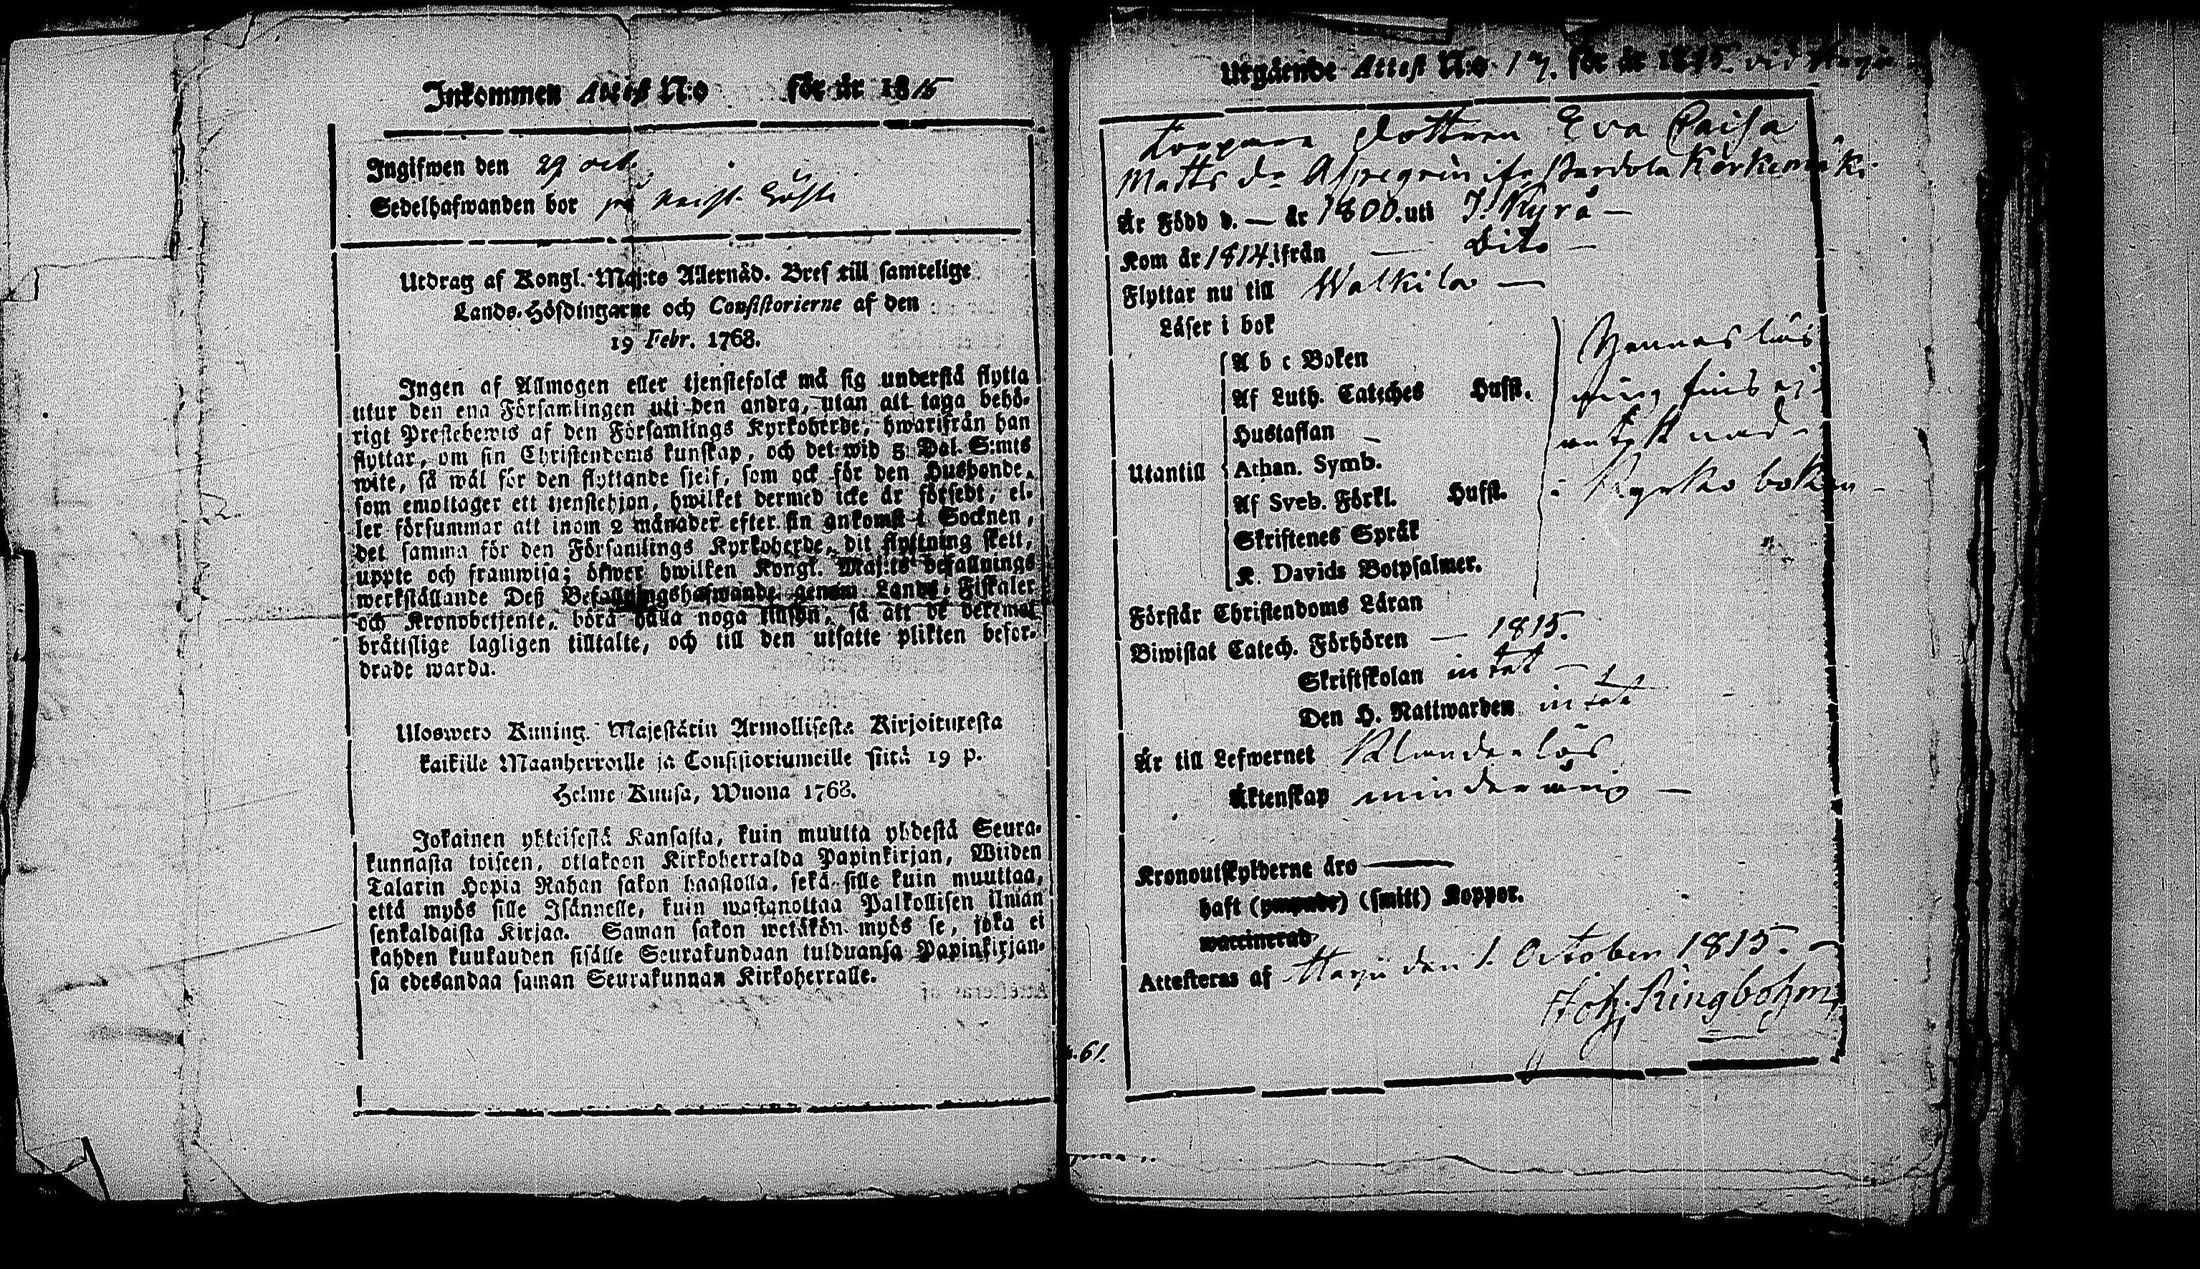 Inkommen Attest N:o för år 1815
Ingifwen den 29 oct.
Sedelhafwanden bor på
Utdrag af Kongl. Maj:ts Allernåd. Bref till samtelige
Lands-Höfdingarne och Consistorierne af den
19 Febr. 1768.
Ingen af Allmogen eller tjenstefolck må sig understå flytta
utur den ena Församlingen uti den andra, utan att taga behö-
rigt Prestebewis af den Församlings Kyrkoherde, hwarifrån han
flyttar, om sin Christendoms kunskap, och det wid 5 Dal. S:mts
wite, så wäl för den flyttande sjelf, som ock för den Husbonde,
som emottager ett tjenstehjon, hwilket dermed icke är försedt, el-
ler försummar att inom 2 månader efter sin ankomst i Socknen,
det samma för den Församlings Kyrkoherde, dit flyttning skett,
uppte och framwisa; öfwer hwilken Kongl. Maj:ts befallnings
werkställande Deß Befallningshafwande genom Lands-Fiskaler
och Kronobetjente, böra hålla noga tilsyn, så att de deremot
bråttslige lagligen tilltalte, och till den utsatte plikten befor-
drade warda.
Uloswero Kuning. Majestätin Armollisesta Kirjoituxesta
kaikille Maanherroille ja Consistoriumeille siitä 19 p.
Helme Kuusa, Wuona 1768.
Jokainen yhteisestä Kansasta, kuin muutta yhdestä Seura-
kunnasta toiseen, ottakoon Kirkoherralda Papinkirjan, Wiiden
Talarin Hopia Rahan sakon haastolla, sekä sille kuin muuttaa,
että myös sille Isännelle, kuin wastanottaa Palkollisen ilman
senkaldaista Kirjaa. Saman sakon wetäkön myös se, joka ei
kahden kuukauden sisälle Seurakundaan tulduansa Papinkirjan-
sa edesandaa saman Seurakunnan Kirkoherralle.
Utgående Attest N:o 17. för år 1815. vid
dottren Eva Caisa
Matts dr Aspegrèn ifr
Är Född d. — år 1800. uti St. Kyrå —
Kom år 1814. ifrån — Dito —
Flyttar nu till Walkila —
Läser i bok
A b c Boken
Af Luth. Cateches Hufst.
Hustaflan
Utantill
Athan. Symb.
Af Sveb. Förkl. Hufst.
Skriftenes Språk
K. Davids Botpsalmer.
Hennes läs
ning fins ej
antecknad
i Kyrko boken
Förstår Christendoms Läran
Biwistat Catech. Förhören — 1815.
Skriftskolan intet —
Den H. Nattwarden intet
Är till Lefwernet Klanderlös
Äktenskap minderårig —
Kronoutskylderne äro
haft (ympade) (smitt) Koppor.
waccinerad
Attesteras af Harju den 1. October 1815. —
Joh. Ringbohm
.61.